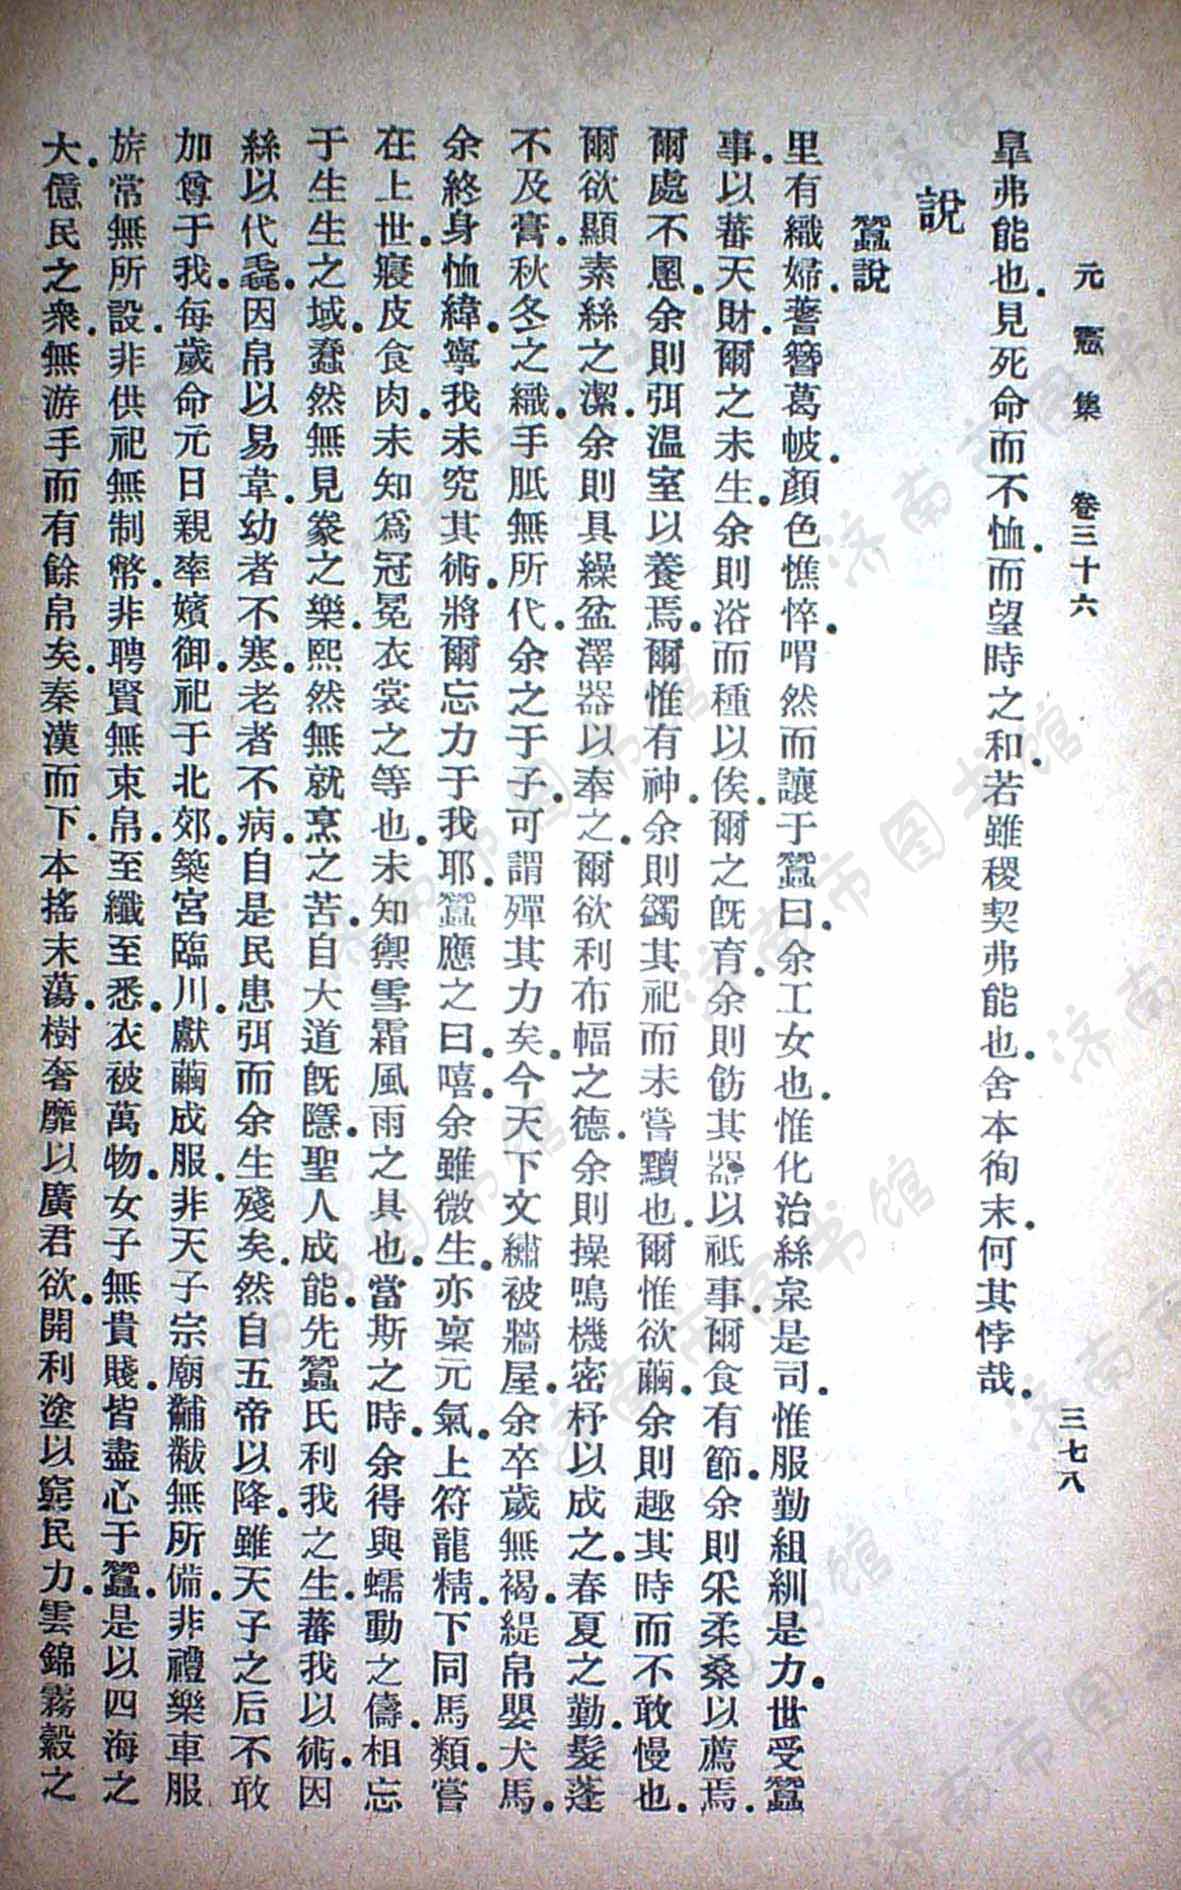 元憲集 卷三十六 三七八
臯弗能也.見死命而不恤.而望時之和.若雖稷契弗能也.舍本徇末.何其悖哉.
說
蠶說
里有織婦.蓍簪葛帔.顏色憔悴.喟然而讓于蠶曰.余工女也.惟化治絲枲是司.惟服勤組紃是力.世受蠶
事.以蕃天財.爾之未生.余則浴而種以俟.爾之旣育.余則飭其器以祗事.爾食有節.余則采柔桑以薦焉.
爾處不慁.余則弭温室以養焉.爾惟有神.余則蠲其祀而未嘗黷也.爾惟欲繭.余則趣其時而不敢慢也.
爾欲顯素絲之潔.余則具繰盆澤器以奉之.爾欲利布幅之德.余則操鳴機密杼以成之.春夏之勤.髮蓬
不及膏.秋冬之織.手胝無所代.余之于子.可謂殫其力矣.今天下文繡被牆屋.余卒歲無褐.緹帛嬰犬馬.
余終身恤緯.寧我未究其術.將爾忘力于我耶.蠶應之曰.嘻.余雖微生.亦稟元氣.上符龍精.下同馬類.嘗
在上世.寢皮食肉.未知爲冠冕衣裳之等也.未知禦雪霜風雨之具也.當斯之時.余得與蠕動之儔.相忘
于生生之域.蠢然無見豢之樂.熙然無就烹之苦.自大道旣隱.聖人成能.先蠶氏利我之生.蕃我以術.因
絲以代毳.因帛以易韋.幼者不寒.老者不病.自是民患弭而余生殘矣.然自五帝以降.雖天子之后不敢
加尊于我.每歲命元日親率嬪御.祀于北郊.築宮臨川.獻繭成服.非天子宗廟黼黻無所備.非禮樂車服
旂常無所設.非供祀無制幣.非聘賢無束帛.至纖至悉.衣被萬物.女子無貴賤.皆盡心于蠶.是以四海之
大.億民之衆.無游手而有餘帛矣.秦漢而下.本搖末蕩.樹奢靡以廣君欲.開利塗以窮民力.雲錦霧縠之